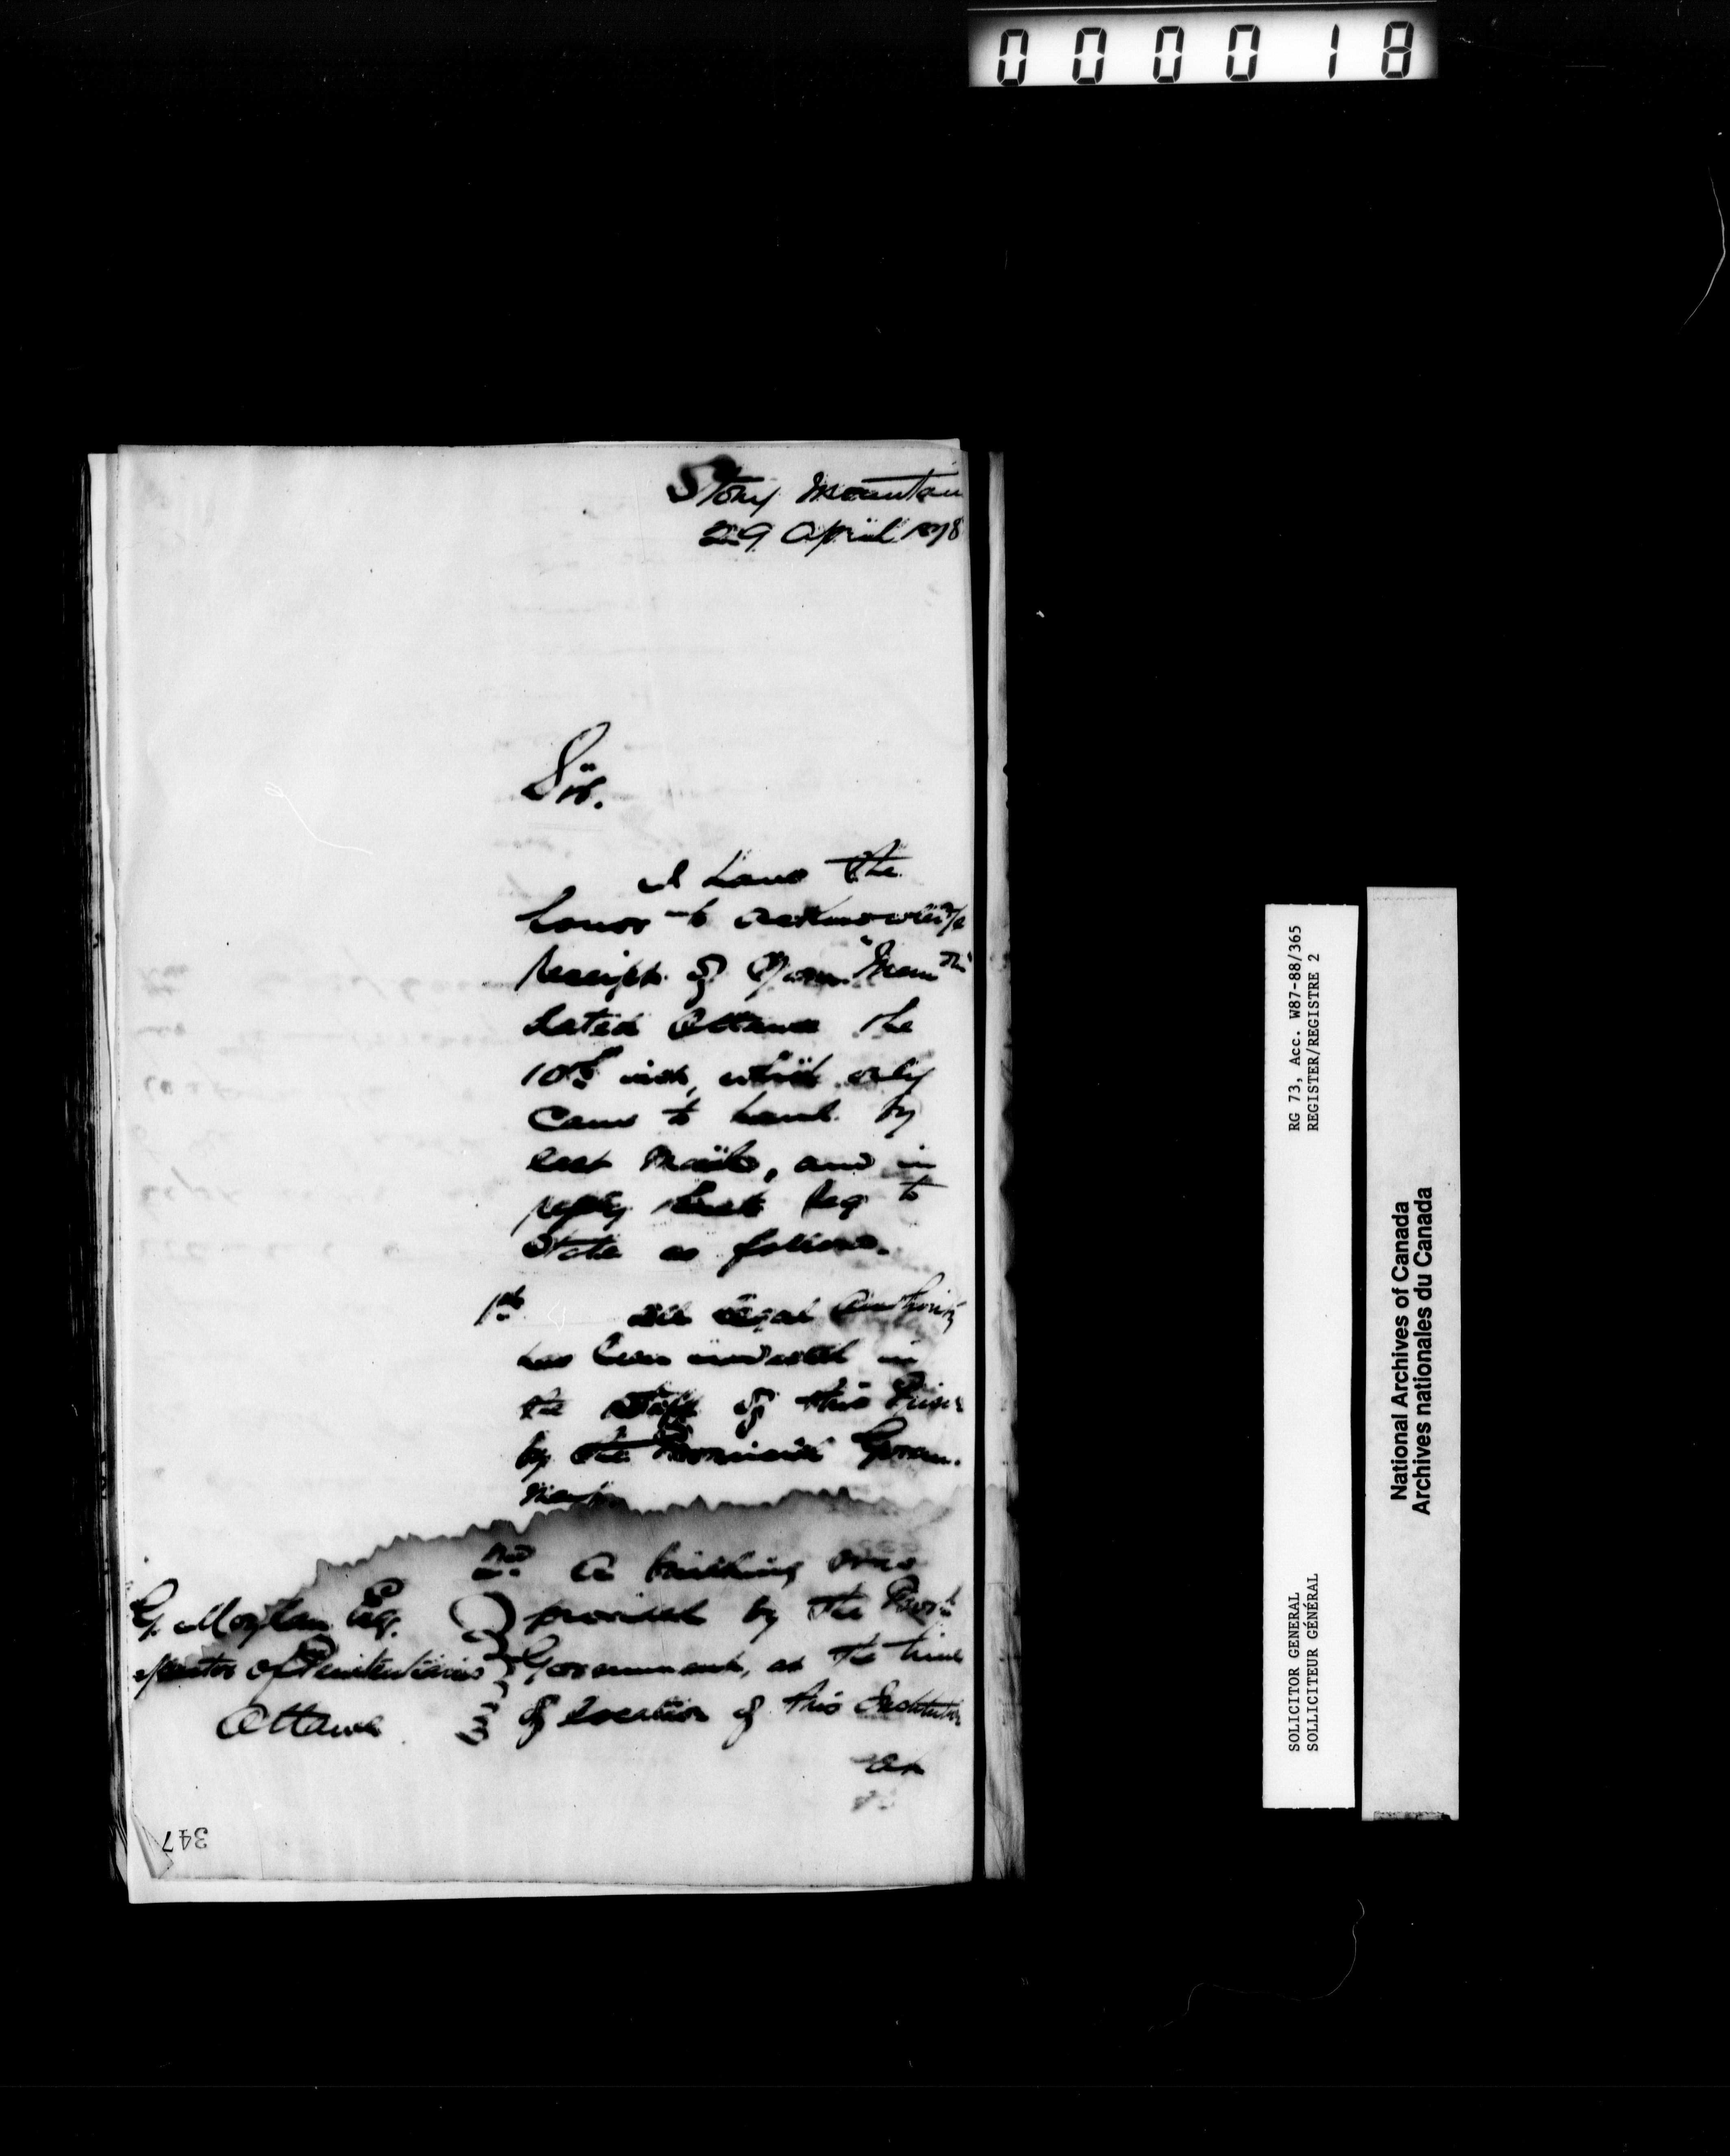 000018
Stony Mountain
29 April 1878
Sir.
I have the
honor to acknowledge
receipt of Your "Mem
dated Ottawa the
10th inst, which only
came to hand by
last Mail, and in
reply thereto beg to
State as follows.
1st All legal Authority
has been invested in
the staff of this Prison
by the Provincial Govern-
ment
2nd A building was
provided by the
Government, at the time
of location of this Institution
at
G. Moylan Esq.
spector of Penitentiaries
Ottawa
347
RG 73, Acc. W87-88/365
REGISTER/REGISTRE 2
SOLICITOR GENERAL
SOLLICITEUR GÉNÉRAL
National Archives of Canada
Archives nationales du Canada